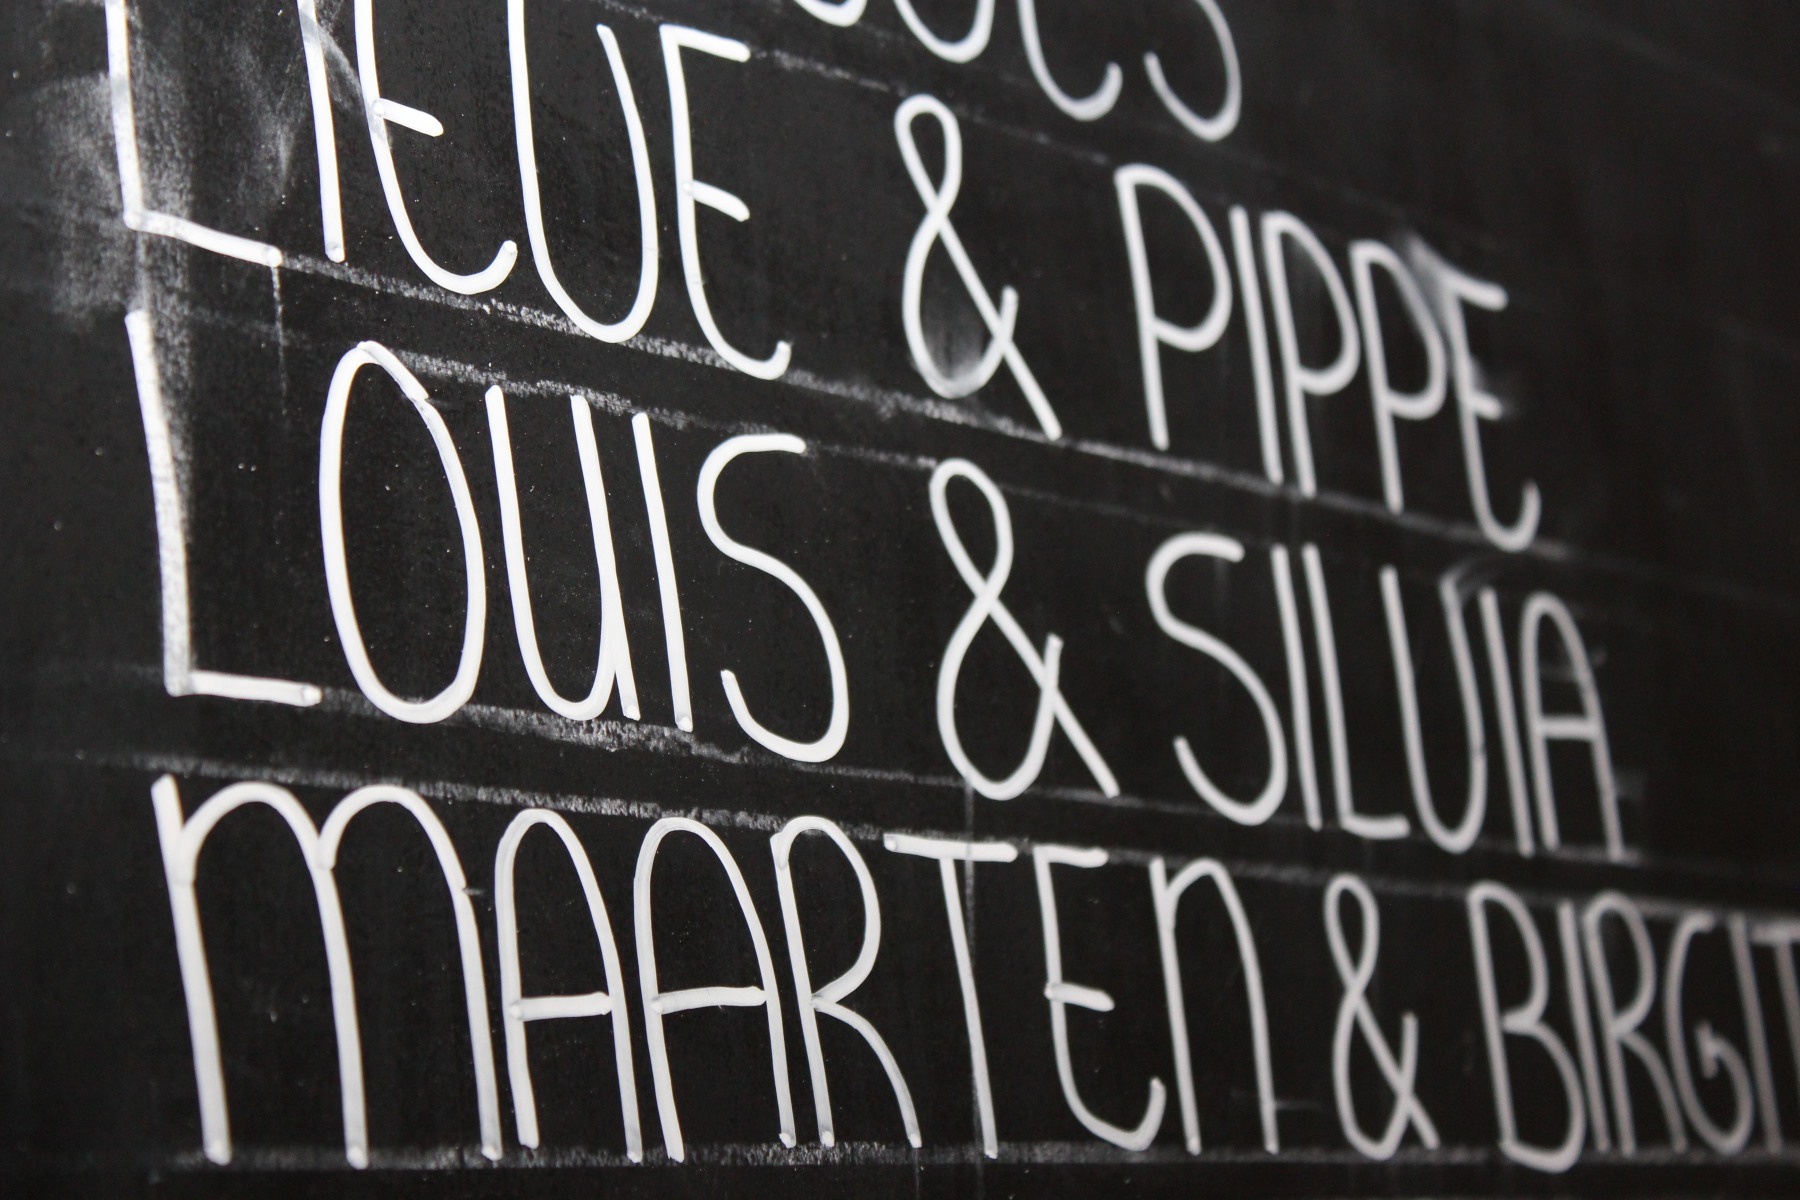 LIEUE & PIPPE
LOUIS & SILUIA
MAARTEN & BIRGIT